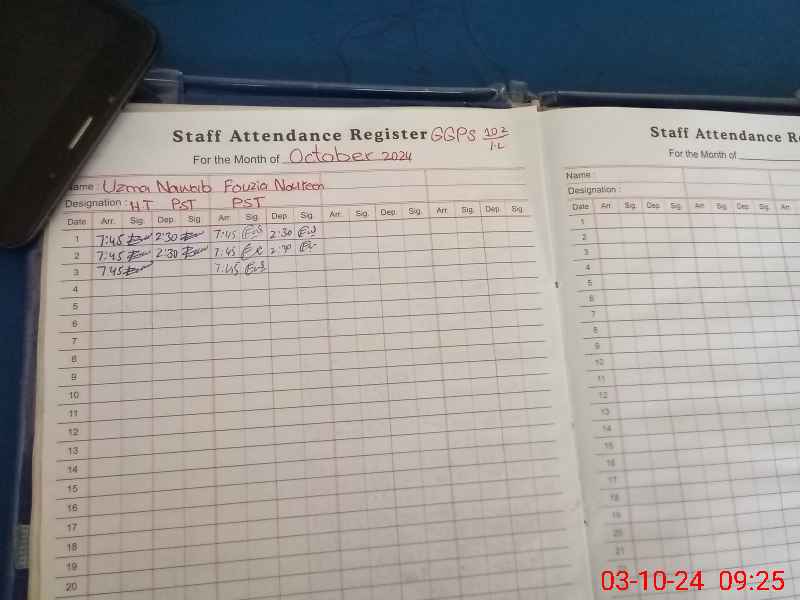 Staff Attendance Register GGPS 102/1.L
For the Month of October 2024
Name : Uzma Nawaib Fouzia Noureen
Designation : HT PST PST
Date Arr. Sig. Dep. Sig. Arr. Sig. Dep. Sig. Arr. Sig. Dep. Sig. Arr. Sig. Dep. Sig.
1 7:45 2:30 7:45 2:30
2 7:45 2:30 7:45 2:30
3 7:45 7:45
4
5
6
7
8
9
10
11
12
13
14
15
16
17
18
19
20
Staff Attendance Re
For the Month of
Name :
Designation :
Date Arr. Sig. Dep. Sig. Arr. Sig. Dep. Sig. Arr.
1
2
3
4
5
6
7
8
9
10
11
12
13
14
15
16
17
18
19
20
21
03-10-24 09:25